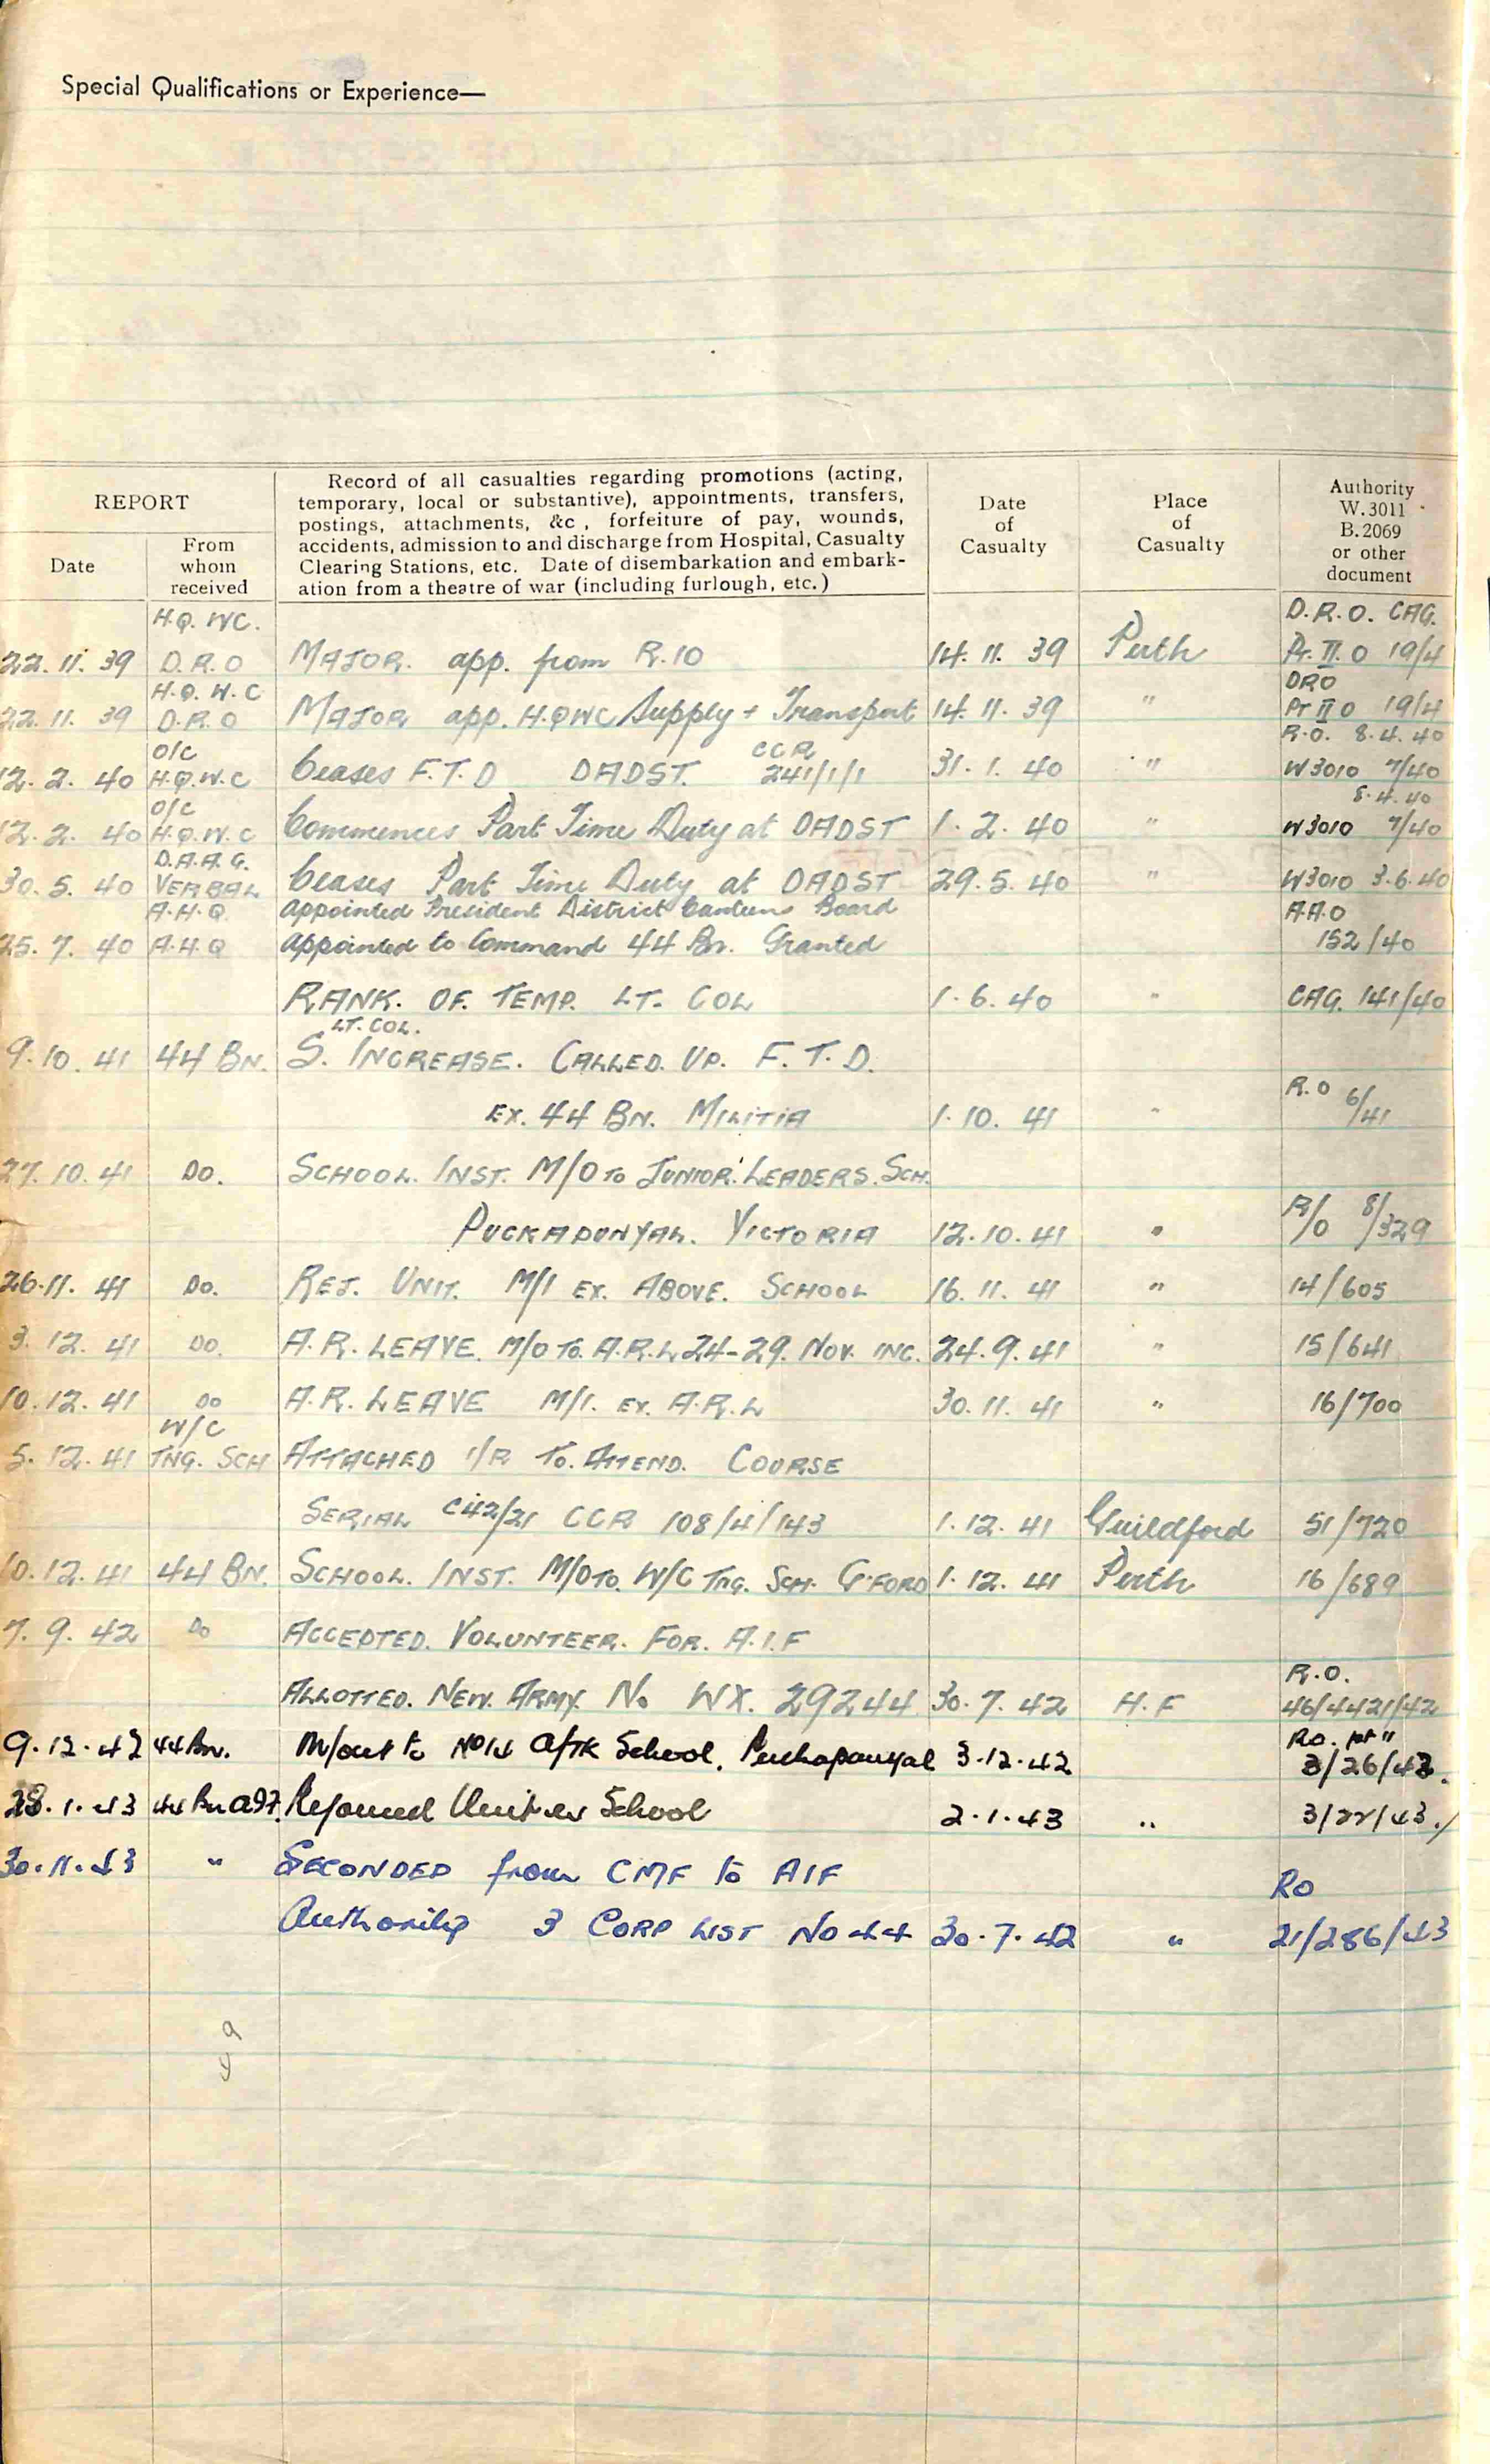 Special Qualifications or Experience—
REPORT
Date
From
whom
received
Record of all casualties regarding promotions (acting,
temporary, local or substantive), appointments, transfers,
postings, attachments, &c , forfeiture of pay, wounds,
accidents, admission to and discharge from Hospital, Casualty
Clearing Stations, etc. Date of disembarkation and embark-
ation from a theatre of war (including furlough, etc.)
Date
of
Casualty
Place
of
Casualty
Authority
W.3011
B.2069
or other
document
H.Q. WC. D.R.O. CAG.
22.11.39 D.R.O MAJOR. app. from R.10 14.11.39 Perth Pt. II. O 19/4
H.Q. W.C DRO
22.11.39 D.R.O MAJOR app. H.QWC Supply + Transport 14.11.39 " Pt II O 19/4
O/C CCR R.O. 8.4.40
12.2.40 H.Q.W.C Ceases F.T.D DADST. 241/1/1 31.1.40 " W3010 7/40
O/C 8.4.40
12.2.40 H.Q.W.C Commences Part Time Duty at DADST 1.2.40 " W3010 7/40
D.A.A.G.
30.5.40 VERBAL Ceases Part Time Duty at DADST 29.5.40 " W3010 3.6.40
A.H.Q. Appointed President District Canteens Board A.A.O
25.7.40 A.H.Q Appointed to Command 44 Bn. Granted 152/40
RANK. OF. TEMP. LT. COL 1.6.40 " CAG. 141/40
LT. COL.
9.10.41 44 BN. S. INCREASE. CALLED. UP. F.T.D.
EX. 44 BN. MILITIA 1.10.41 " R.O 6/41
27.10.41 DO. SCHOOL. INST. M/O TO JUNIOR. LEADERS. SCH.
PUCKAPUNYAL. VICTORIA 12.10.41 " R/O 8/329
26.11.41 DO. REJ. UNIT. M/I EX. ABOVE. SCHOOL 16.11.41 " 14/605
3.12.41 DO. A.R. LEAVE. M/O TO. A.R.L 24-29. NOV. INC. 24.9.41 " 15/641
10.12.41 DO A.R. LEAVE M/I. EX. A.R.L 30.11.41 " 16/700
W/C
5.12.41 TNG. SCH ATTACHED I/R TO. ATTEND. COURSE
SERIAL C42/21 CCR 108/4/143 1.12.41 Guildford 51/720
10.12.41 44 BN. SCHOOL. INST. M/O TO. W/C TNG. SCH. G'FORD 1.12.41 Perth 16/689
7.9.42 DO ACCEPTED. VOLUNTEER. FOR. A.I.F
R.O.
ALLOTTED. NEW. ARMY. NO WX. 29244 30.7.42 H.F 46/4421/42
RO. pt "
9.12.42 44 Bn. M/out to No 14 A/TK School, Puckapunyal 3.12.42 3/26/43.
28.1.43 44 Bn Rejoined Unit ex School 2.1.43 " 3/22/43.
30.11.43 " SECONDED from CMF to AIF
RO
Authority 3 CORP LIST NO 44 30.7.42 " 21/286/43